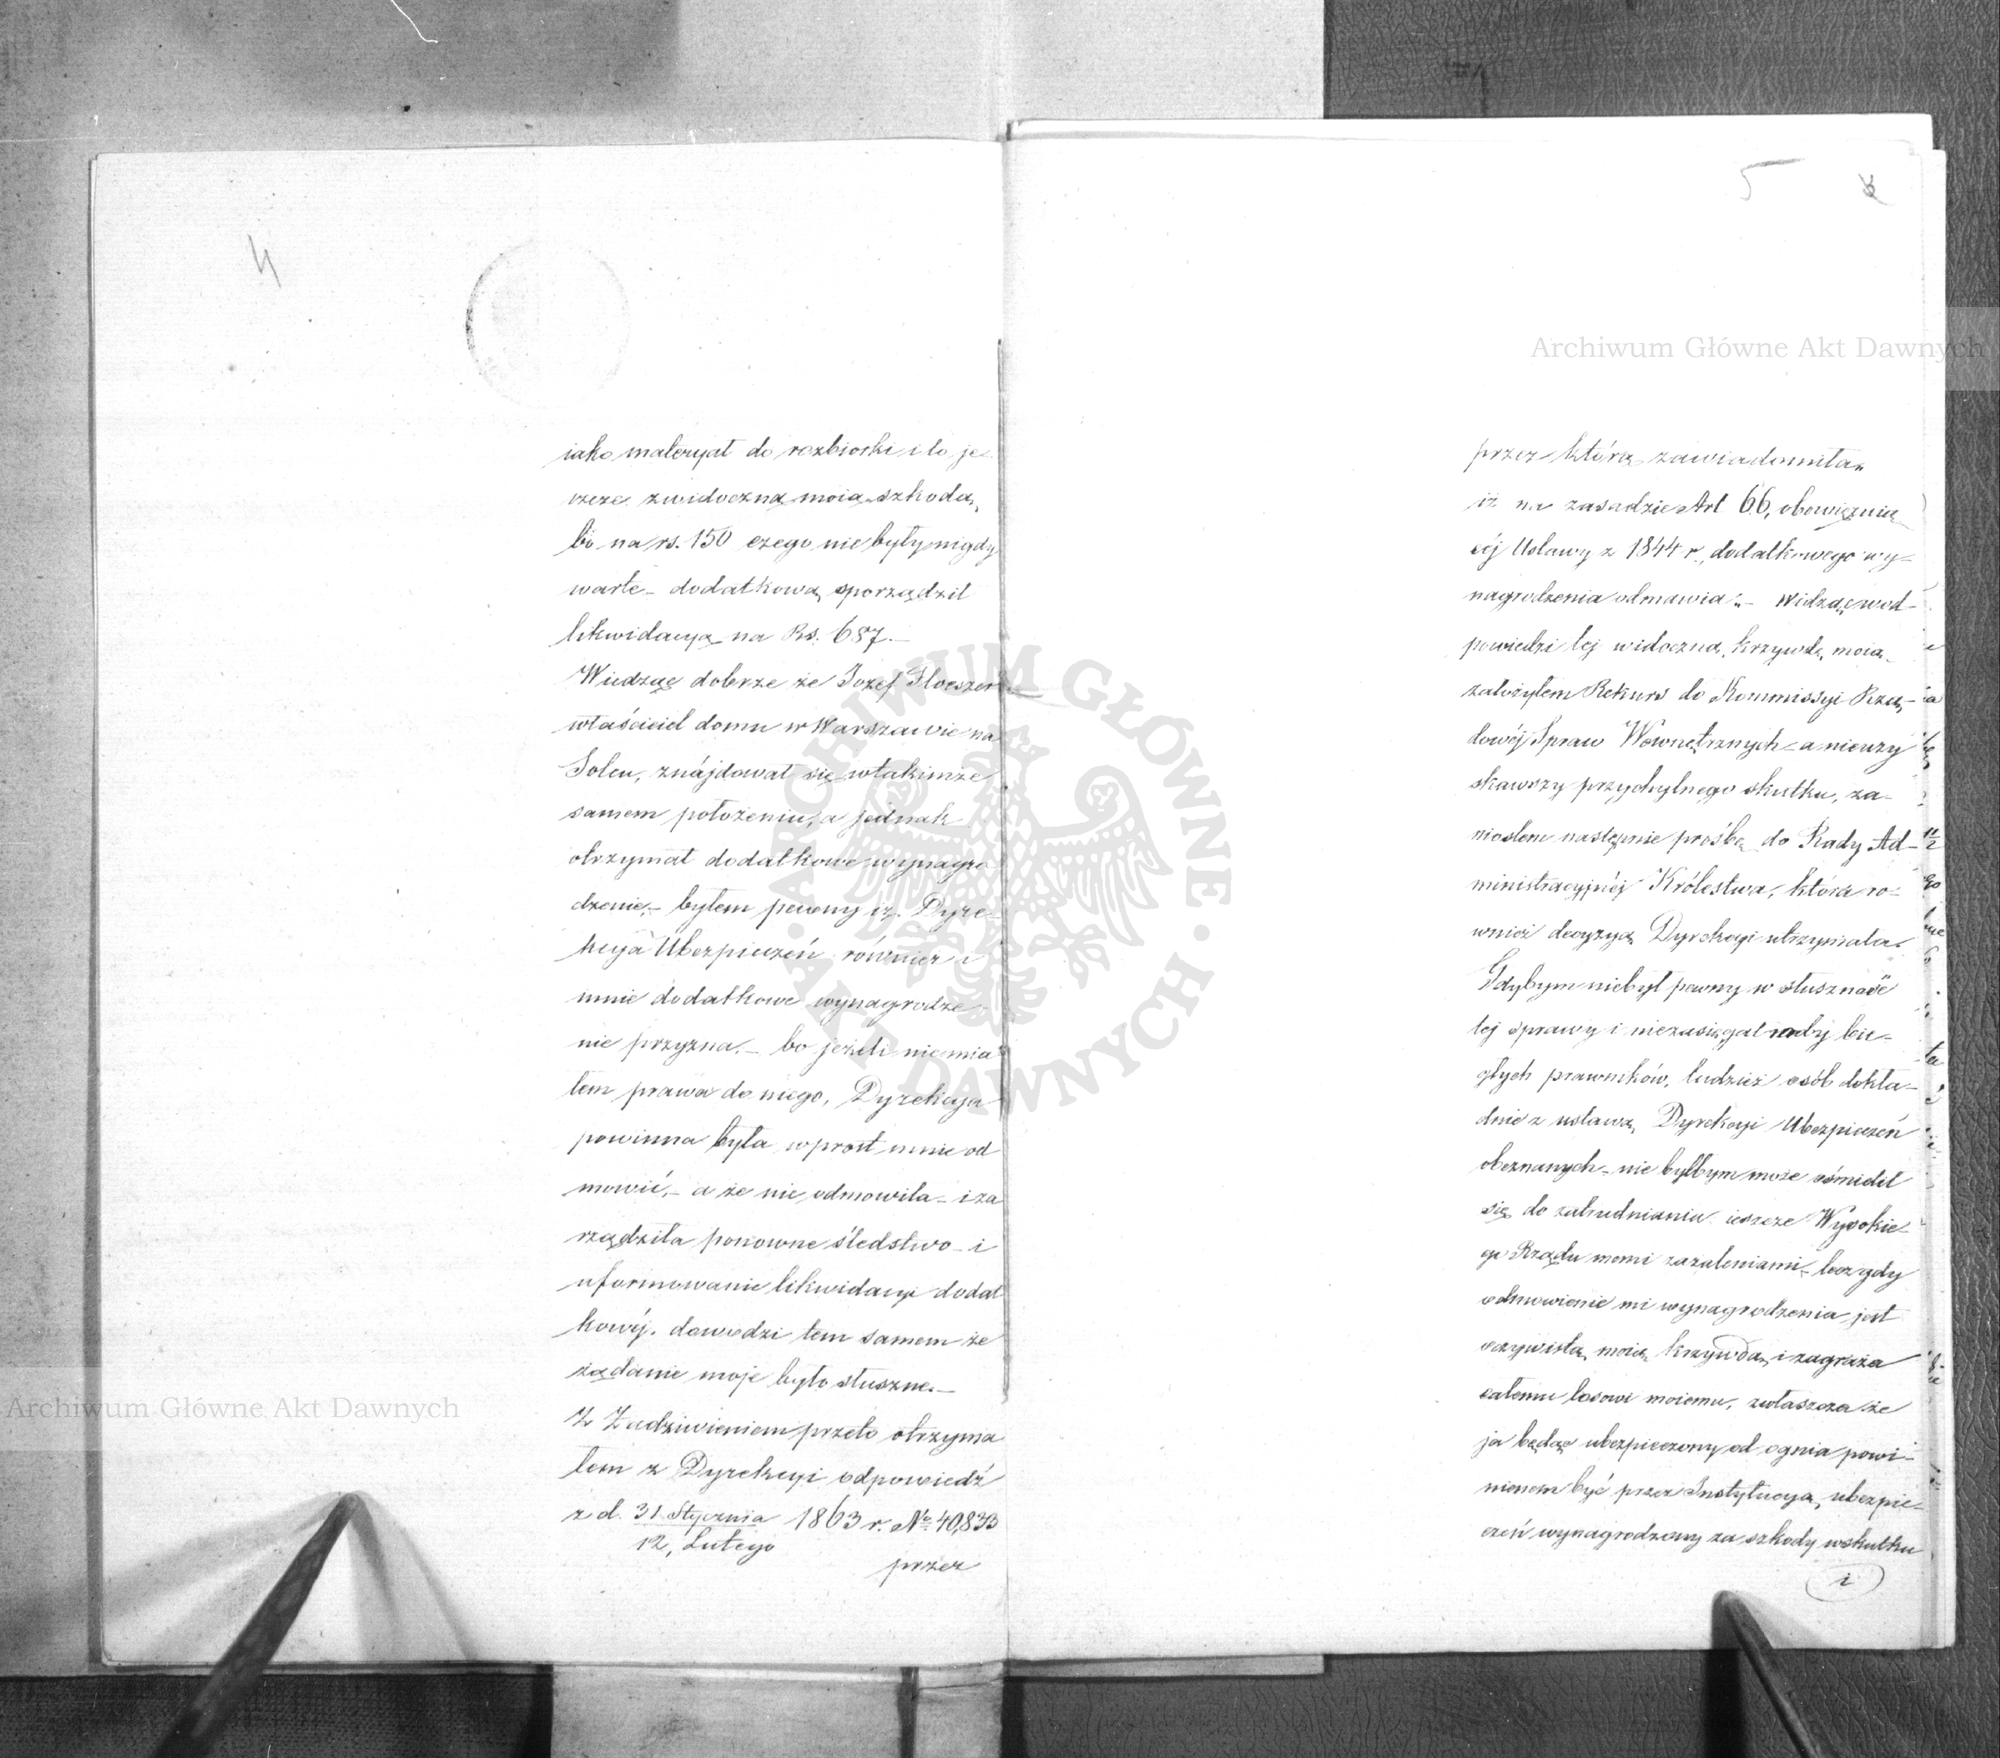 4
iako materyał do rozbiorki i to je
szcze z widoczną moią szkodą,
bo na rs. 150 czego nie były nigdy
warte – dodatkową sporządził
likwidacyą na Rs. 687.–
Wiedząc dobrze że Jozef Floeszer
właściciel domu w Warszawie na
Solcu, znájdował się w takimże
samem położeniu, a jednak
otrzymał dodatkowe wynagro
dzenie,– byłem pewny iż Dyre–
kcyja Ubezpieczeń również i
mnie dodatkowe wynagrodze–
nie przyzna,– bo jeżeli nie mia
łem prawa do niego, Dyrekcyja
powinna była wprost mnie od
mowić,– a że nie odmowiła – i za
rządziła ponowne śledstwo – i
uformowanie likwidacyi dodat
kowéj, dowodzi tem samem że
żądanie moje było słuszne.–
Z Zadziwieniem przeto otrzyma
łem z Dyrekcyi odpowiedź
z d. 31 Stycznia 1863 r. No 40,833
12, Lutego
przez
5
przez którą zawiadomiła,
iż na zasadzie Art 66, obowięzuią
céj Ustawy z 1844 r., dodatkowego wy–
nagrodzenia odmawia.– Widząc w od–
powiedzi téj widoczną krzywdę moią,
założyłem Rekurs do Kommissyi Rzą–
dowéj Spraw Wewnętrznych – a nieuzy
skawszy przychylnego skutku, za–
niosłem następnie prośbę do Rady Ad–
ministracyjnéj Królestwa, która ro–
wnież decyzyą Dyrekcyi utrzymała.
Gdybym niebył pewny w słuszność
téj sprawy i niezasięgał rady bie–
głych prawników, tudzież osób dokła–
dnie z ustawą Dyrekcyi Ubezpieczeń
obeznanych – nie byłbym może ośmielił
się do zatrudniania ieszcze Wysokie–
go Rządu memi zażaleniami,– lecz gdy
odmowienie mi wynagrodzenia jest
oczywistą moią krzywdą, i zagraża
całemu losowi moiemu, zwłaszcza że
ja będąc ubezpieczony od ognia powi–
nienem być przez Instytucyą ubezpie–
czeń wynagrodzony za szkody wskutku
i
Archiwum Główne Akt Dawnych
Archiwum Główne Akt Dawnych
ARCHIWUM GŁÓWNE • AKT DAWNYCH •